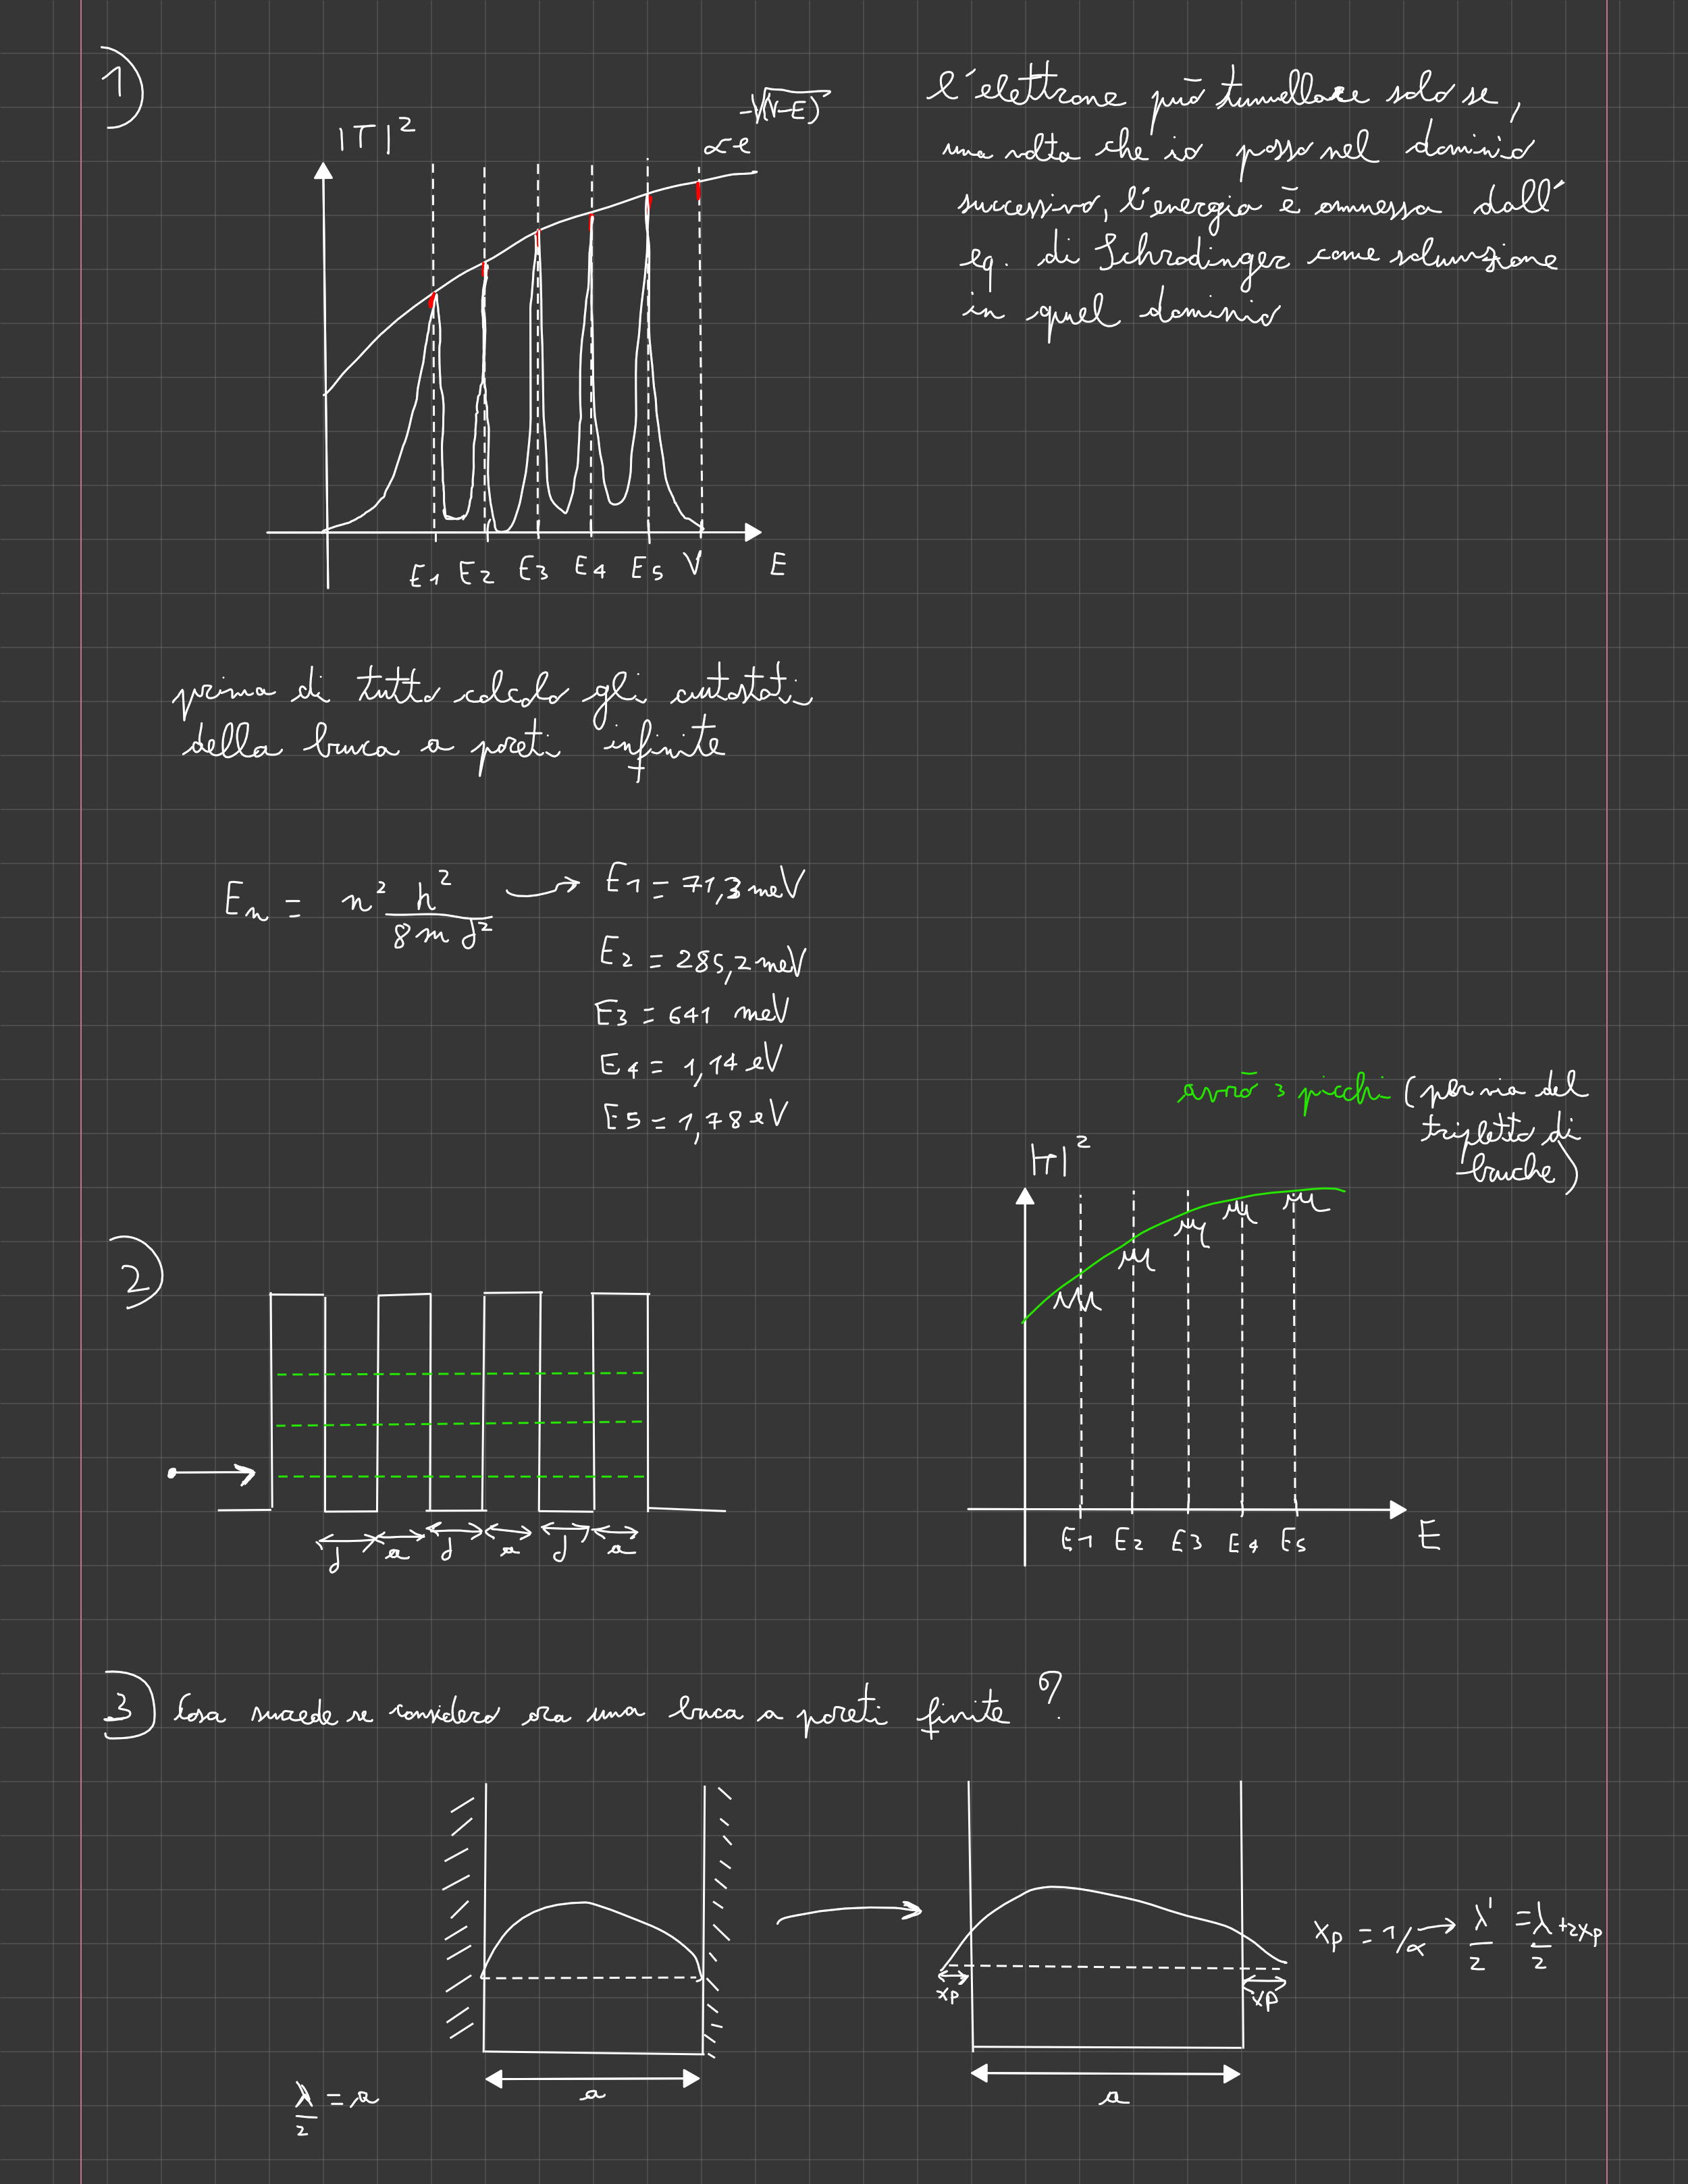 1)
|T|²
∝ e^-√(V-E)
l'elettrone può tunnellare solo se,
una volta che io passo nel dominio
successivo, l'energia è ammessa dall'
eq. di Schrodinger come soluzione
in quel dominio
E1 E2 E3 E4 E5 V E
prima di tutto calcolo gli autostati
della buca a pareti infinite
En = n² h² / 8 m d² → E1 = 71,3 meV
E2 = 285,2 meV
E3 = 641 meV
E4 = 1,14 eV
E5 = 1,78 eV
avrò 3 picchi (per via del
tripletto di
buche)
|T|²
2)
d a d a d a
E1 E2 E3 E4 E5 E
3) Cosa succede se considero ora una buca a pareti finite?
xp = 1/α → λ'/2 = λ/2 + 2xp
xp xp
λ/2 = a
a a